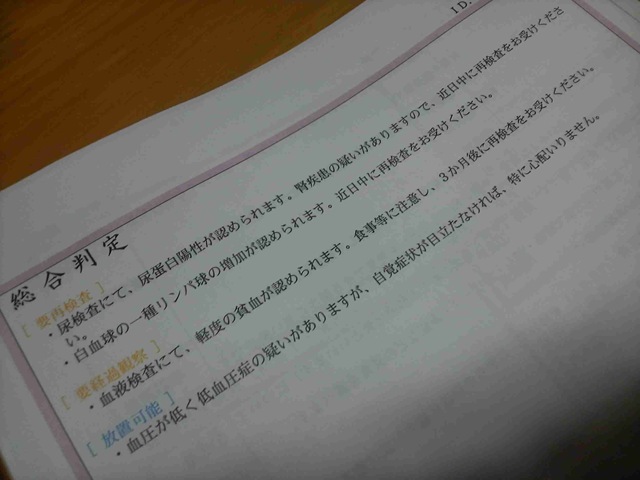 ID.
総合判定
[ 要再検査 ]
・尿検査にて、尿蛋白陽性が認められます。腎疾患の疑いがありますので、近日中に再検査をお受けくださ
い。
・白血球の一種リンパ球の増加が認められます。近日中に再検査をお受けください。
[ 要経過観察 ]
・血液検査にて、軽度の貧血が認められます。食事等に注意し、３か月後に再検査をお受けください。
[ 放置可能 ]
・血圧が低く低血圧症の疑いがありますが、自覚症状が目立たなければ、特に心配いりません。